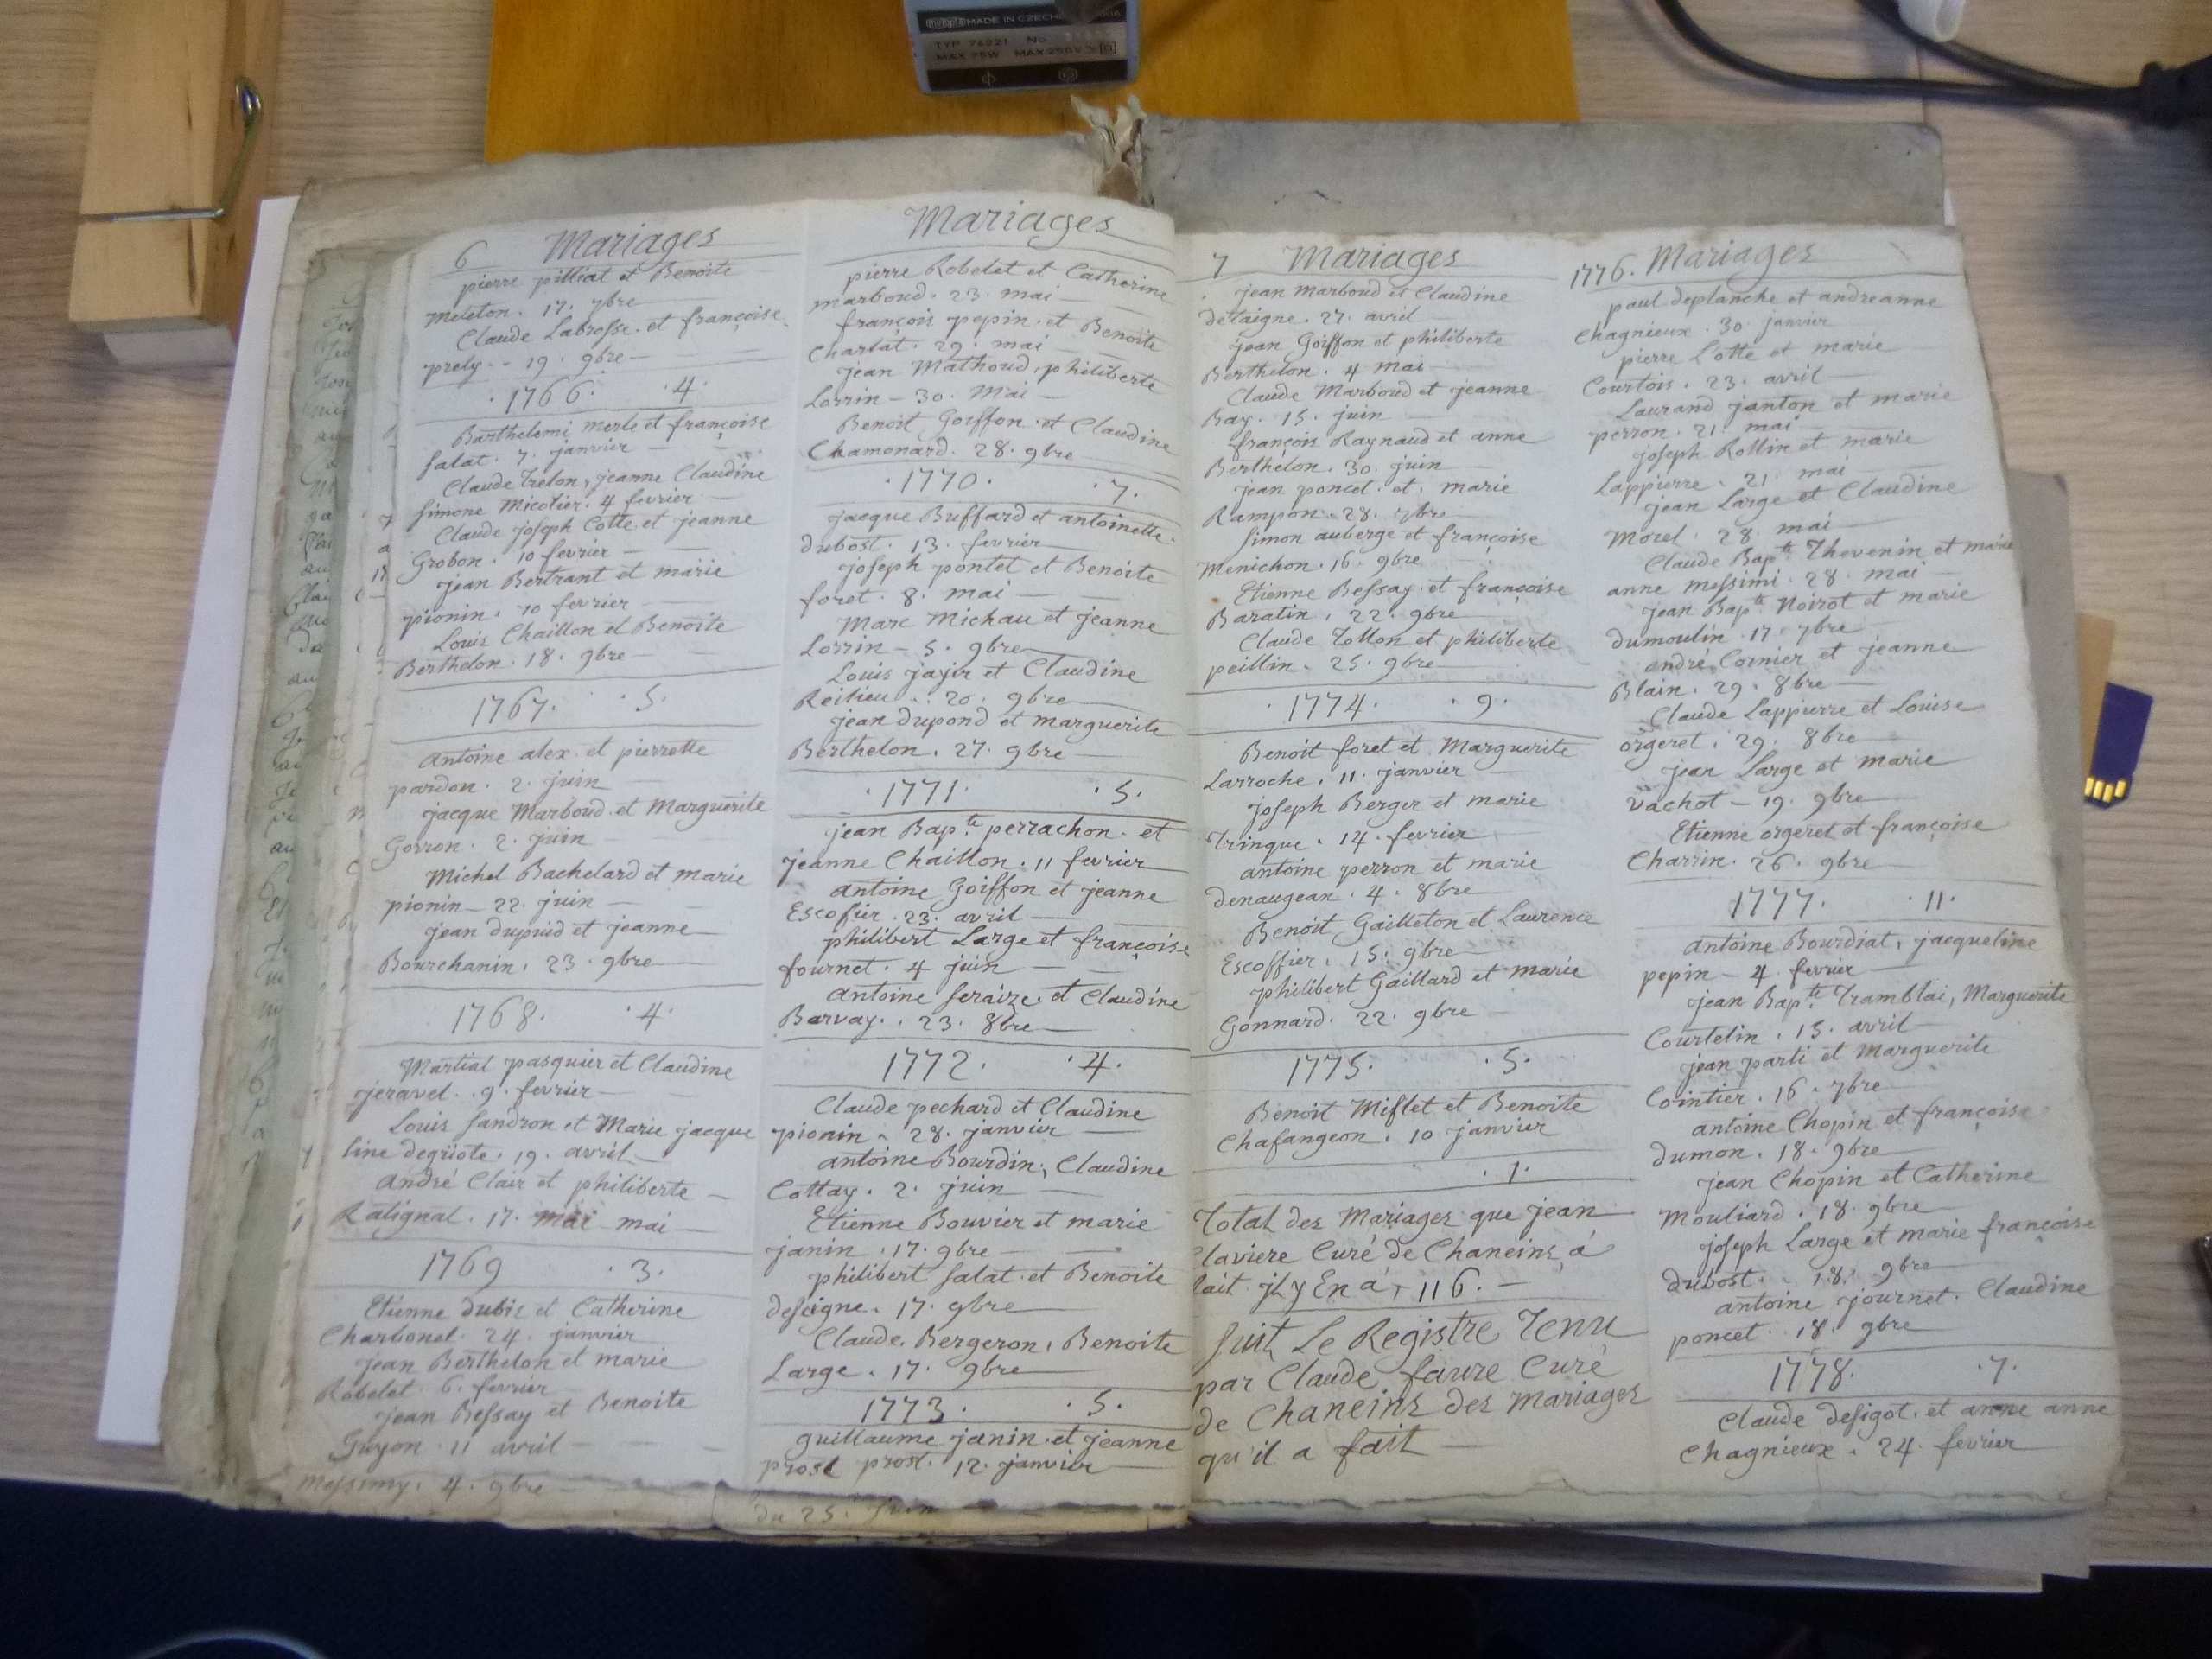 MADE IN CZECHO
TYP 76221 No
MAX 25W MAX 250V
6 Mariages
pierre pilliat et Benoite
meleton. 17. 7bre
Claude Labrosse. et françoise
prely - 19. 9bre
1766. 4.
Barthelemi merle et françoise
salat. 7. janvier
Claude Trelon, jeanne Claudine
simone Micolier. 4 fevrier
Claude joseph Cotte et jeanne
Grobon. 10 fevrier
jean Bertrant et marie
pionin. 10 fevrier
Louis Chaillon et Benoite
Berthelon. 18. 9bre
1767. 5.
antoine alex et pierrette
pardon. 2. juin
jacque Marboud. et Marguerite
Gorron. 2. juin
Michel Bachelard et marie
pionin 22. juin
jean dupuid et jeanne
Bourchanin. 23. 9bre
1768. 4.
Martial pasquier et Claudine
jeravel. 9. fevrier
Louis sandron et Marie jacque
line degriote. 19. avril
andré Clair et philiberte
Ratignat. 17. mai mai
1769 3.
Etienne dubis et Catherine
Charbonel. 24. janvier
jean Berthelon et marie
Robelet. 6. fevrier
jean Bessay et Benoite
Guyon. 11 avril
Messimy. 4. 9bre
Mariages
pierre Robelet et Catherine
marboud. 23. mai
françois pepin. et Benoite
Charlat. 29. mai
jean Mathoud, philiberte
Lorrin - 30. Mai
Benoit Goiffon et Claudine
Chamonard. 28. 9bre
1770. 7.
jacque Buffard et antoinette
dubost. 13. fevrier
joseph pontet et Benoite
foret. 8. mai
Marc Michau et jeanne
Lorrin - 5. 9bre
Louis jayir et Claudine
Reilieu. 20. 9bre
jean dupond et marguerite
Berthelon. 27. 9bre
1771. 5.
jean Bapte perrachon. et
jeanne Chaillon. 11 fevrier
antoine Goiffon et jeanne
Escofier. 23. avril
philibert Large et françoise
fournet. 4 juin
antoine seraize. et Claudine
Barvay. 23. 8bre
1772. 4.
Claude pechard et Claudine
pionin. 28. janvier
antoine Bourdin, Claudine
Cottay. 2. juin
Etienne Bouvier et marie
janin. 17. 9bre
philibert salat. et Benoite
desaigne. 17. 9bre
Claude. Bergeron, Benoite
Large. 17. 9bre
1773. 5.
guillaume janin. et jeanne
prost prost. 12. janvier
du 25. Juin
7 Mariages
jean Marboud et Claudine
detaigne. 27. avril
jean Goiffon et philiberte
Berthelon. 4 mai
Claude Marboud et jeanne
Bay. 15. juin
françois Raynaud et anne
Berthelon. 30. juin
jean poncet. et. marie
Rampon. 28. 7bre
simon auberge et françoise
Menichon. 16. 9bre
Etienne Bessay. et françoise
Baratin. 22. 9bre
Claude Tollon et philiberte
peillin. 25. 9bre
1774. 9.
Benoit foret et Marguerite
Larroche. 11. janvier
joseph Berger et marie
Tringue. 14. fevrier
antoine perron et marie
denaugean. 4. 8bre
Benoit Gailleton et Laurence
Escoffier. 15. 9bre
philibert Gaillard et marie
Gonnard. 22. 9bre
1775. 5.
Benoit Miflet et Benoite
Chafangeon. 10 janvier
1.
Total des Mariages que jean
Claviere Curé de Chaneins à
fait jl y En a, 116.
suit Le Registre Tenu
par Claude favre Curé
de Chaneins des mariages
qu'il a fait
1776. Mariages
paul deplanche et andreanne
Chagnieux. 30. janvier
pierre Lotte et marie
Courtois. 23. avril
Laurand janton et marie
perron. 21. mai
joseph Rollin et marie
Lappierre. 21. mai
jean Large et Claudine
Morel. 28. mai
Claude Bapte Thevenin et marie
anne messimi. 28. mai
jean Bapte Noirot et marie
dumoulin. 17. 7bre
andré Cornier et jeanne
Blain. 29. 8bre
Claude Lappierre et Louise
orgeret. 29. 8bre
jean Large et marie
vachot - 19. 9bre
Etienne orgeret et françoise
Charrin. 26. 9bre
1777. 11.
antoine Bourdiat, jacqueline
pepin - 4. fevrier
jean Bapte Tramblai, Marguerite
Courtelin. 15. avril
jean parti et Marguerite
Cointier. 16. 7bre
antoine Chopin et françoise
dumon. 18. 9bre
jean Chopin et Catherine
Mouliard. 18. 9bre
joseph Large et marie françoise
dubost. 18. 9bre
antoine journet. Claudine
poncet. 18. 9bre
1778. 7.
Claude desigot. et anne anne
Chagnieux. 24. fevrier